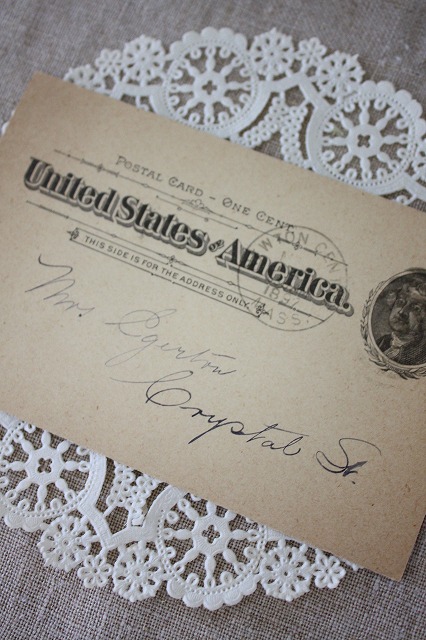 POSTAL CARD - ONE CENT.
United States of America.
THIS SIDE IS FOR THE ADDRESS ONLY.
MASS.
Mrs. Egerton
Crystal St.